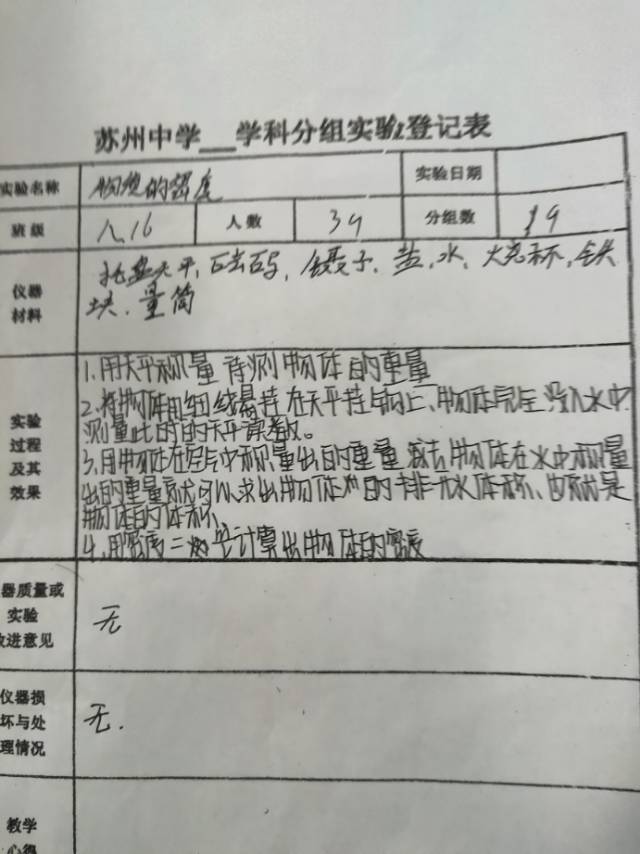 苏州中学___学科分组实验登记表
实验名称 物质的密度 实验日期
班级 八.16 人数 39 分组数 19
仪器材料 托盘天平,砝码,镊子,盐,水,大烧杯,铁
块.量筒
实验过程及其效果 1.用天平称量待测物体的重量
2.将物体用细线悬挂在天平挂钩上、物体完全没入水中
测量此时的天平读数。
3.用物体在空气中称量出的重量减去物体在水中称量
出的重量就可以求出物体的排水体积、也就是
物体的体积.
4.用密度=计算出物体的密度
器质量或实验改进意见 无
仪器损坏与处理情况 无.
教学心得